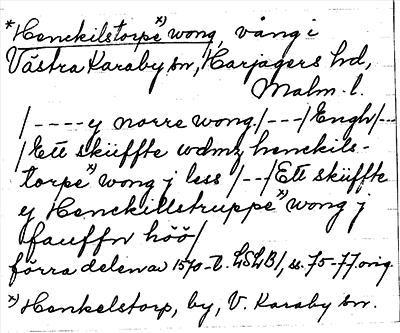 *Henckilstorpe*) wong, vång i
Västra Karaby sn, Harjagers hd,
Malm. l.
/----y norre wong./---/Engh/---
/Ett skiiffte wdmz henckils-
torpe*) wong j less /--/Ett skiiffte
y Henckillstruppe*) wong j
fauffn höö/
förra delen av 1570-t. LSLB/, ss. 75-77. orig.
*) Henkelstorp, by, V. Karaby sn.